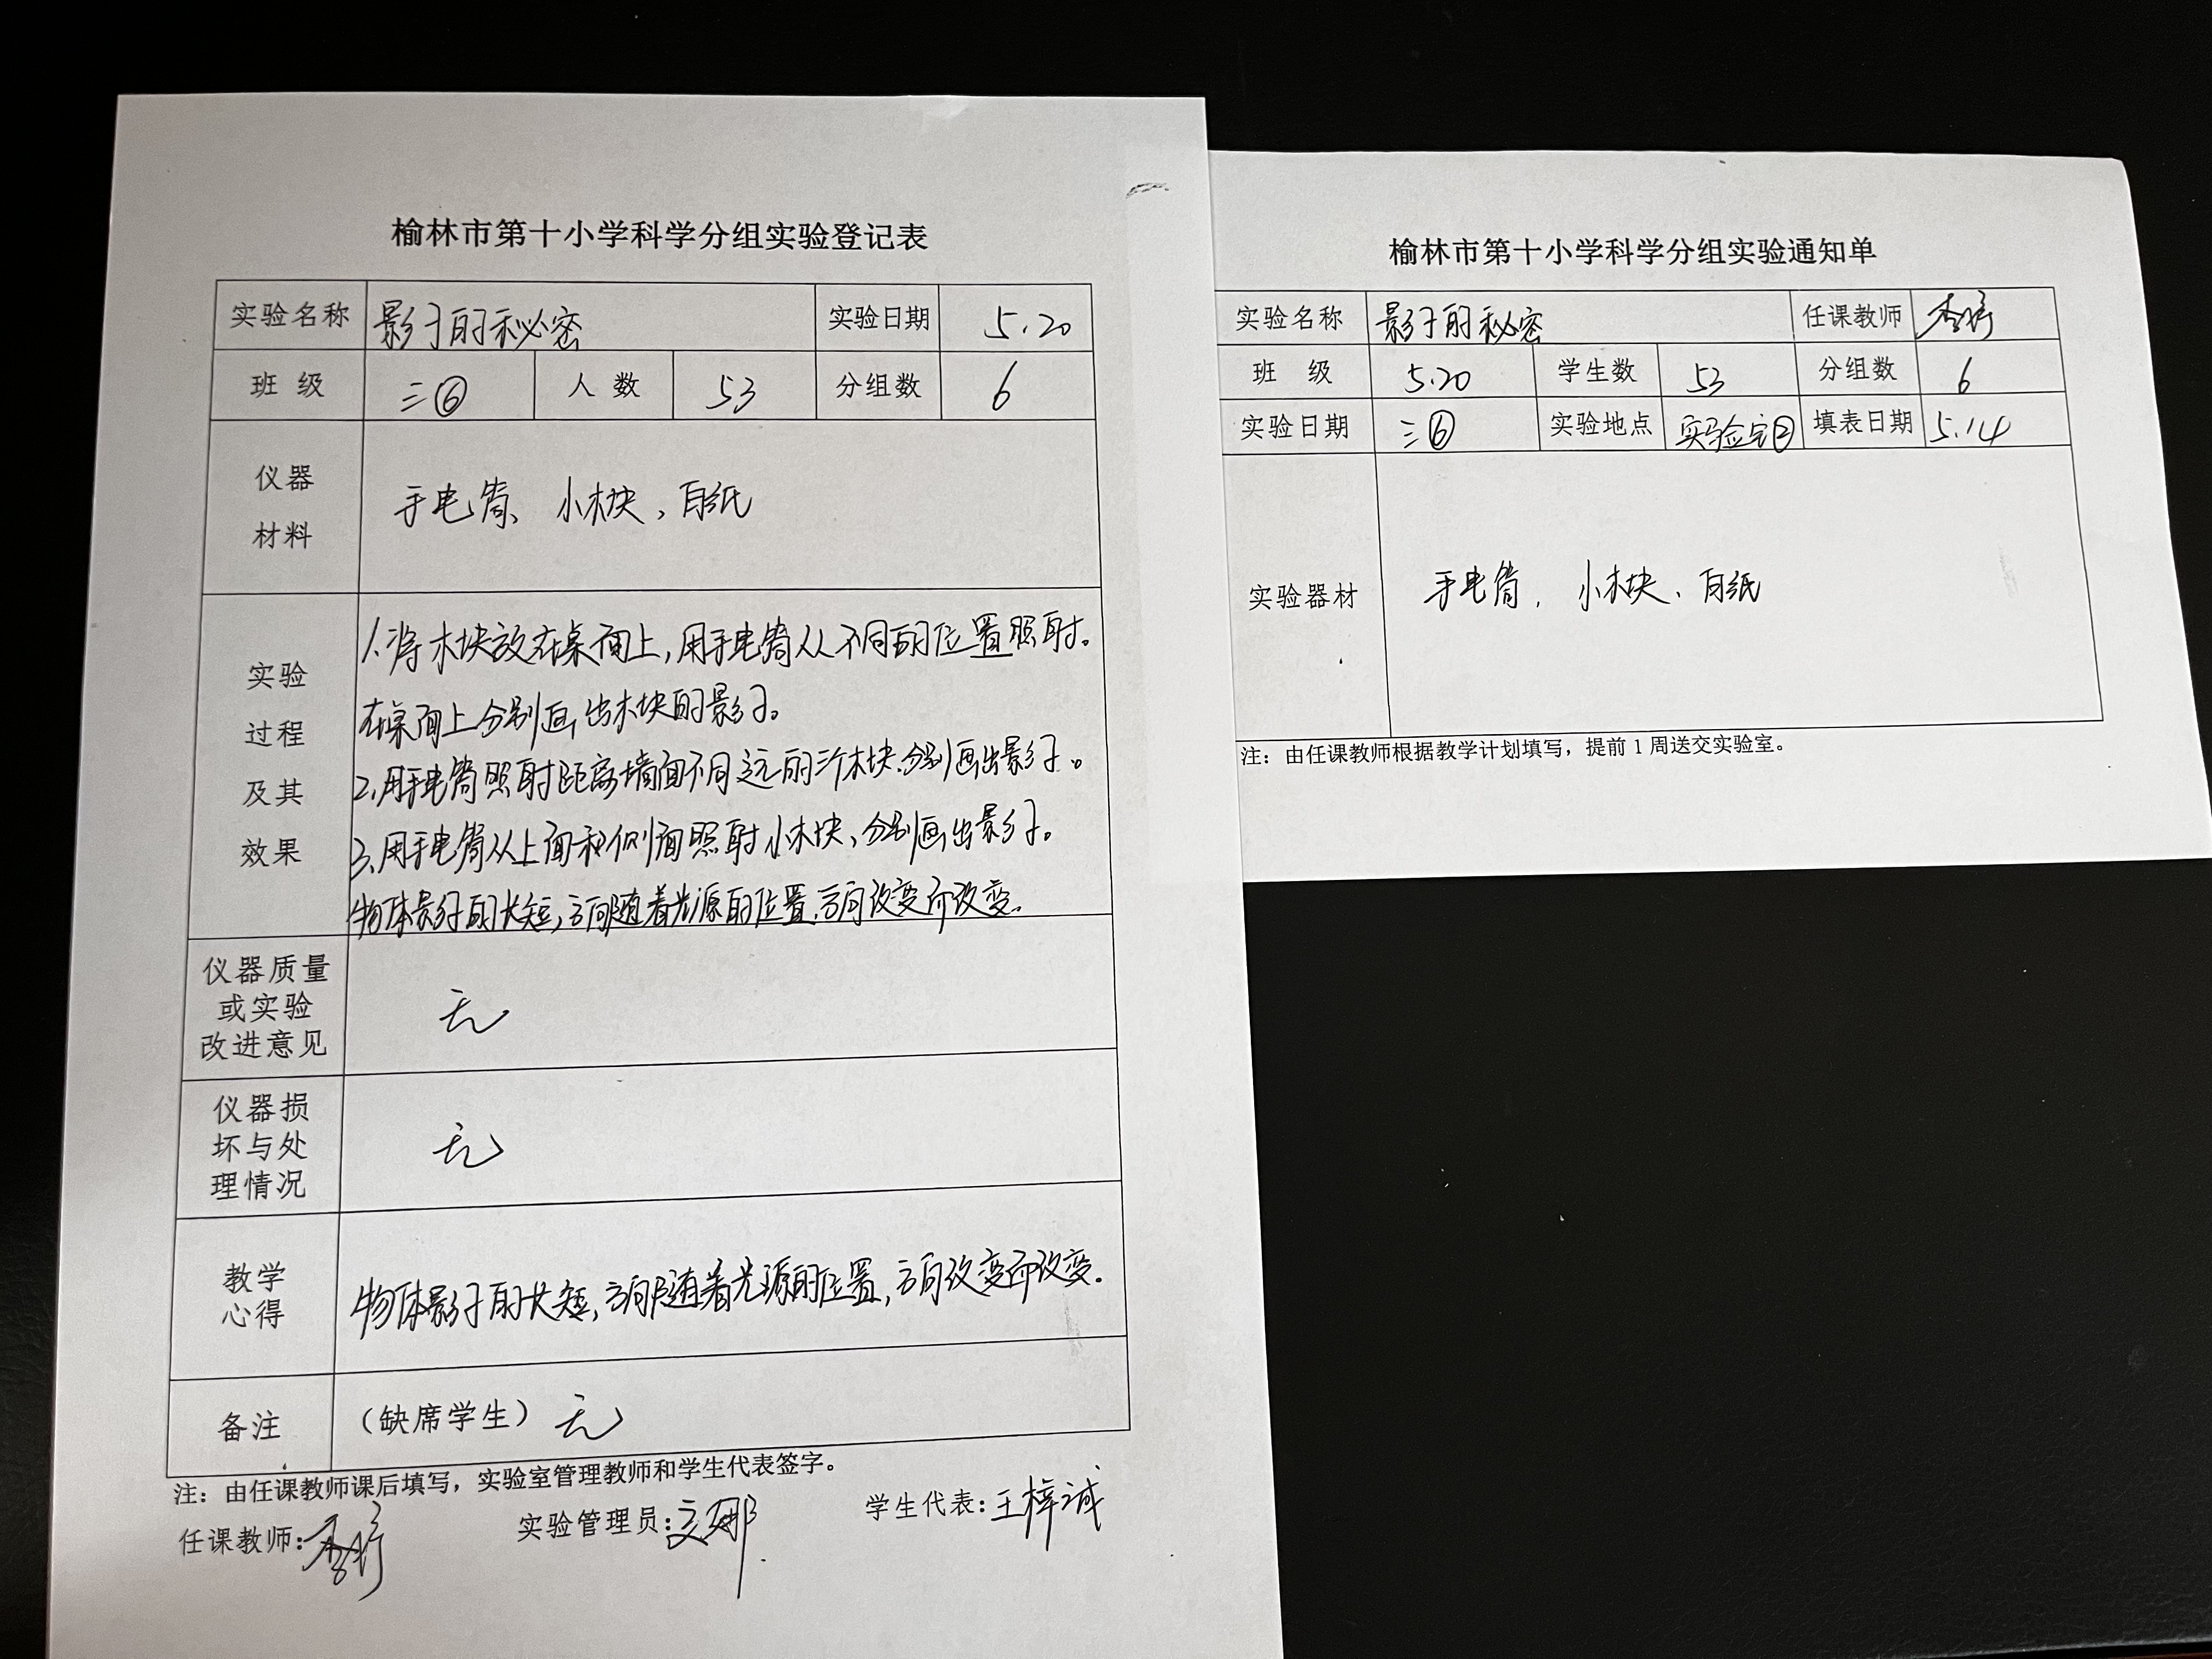 榆林市第十小学科学分组实验登记表
实验名称 影子的秘密 实验日期 5.20
班 级 三⑥ 人 数 53 分组数 6
仪器
材料
手电筒、小木块、白纸
实验
过程
及其
效果
1.将木块放在桌面上,用手电筒从不同的位置照射。
在桌面上分别画出木块的影子。
2.用手电筒照射距离墙面不同远的三个木块.分别画出影子。
3.用手电筒从上面和侧面照射小木块、分别画出影子。
物体影子的长短,方向随着光源的位置.方向改变而改变.
仪器质量
或实验
改进意见
无
仪器损
坏与处
理情况
无
教学
心得
物体影子的长短,方向随着光源的位置,方向改变而改变.
备注 (缺席学生) 无
注:由任课教师课后填写,实验室管理教师和学生代表签字。
任课教师: 实验管理员: 学生代表:王梓诚
榆林市第十小学科学分组实验通知单
实验名称 影子的秘密 任课教师
班 级 5.20 学生数 53 分组数 6
实验日期 三⑥ 实验地点 实验室② 填表日期 5.14
实验器材 手电筒、小木块、白纸
注:由任课教师根据教学计划填写,提前1周送交实验室。